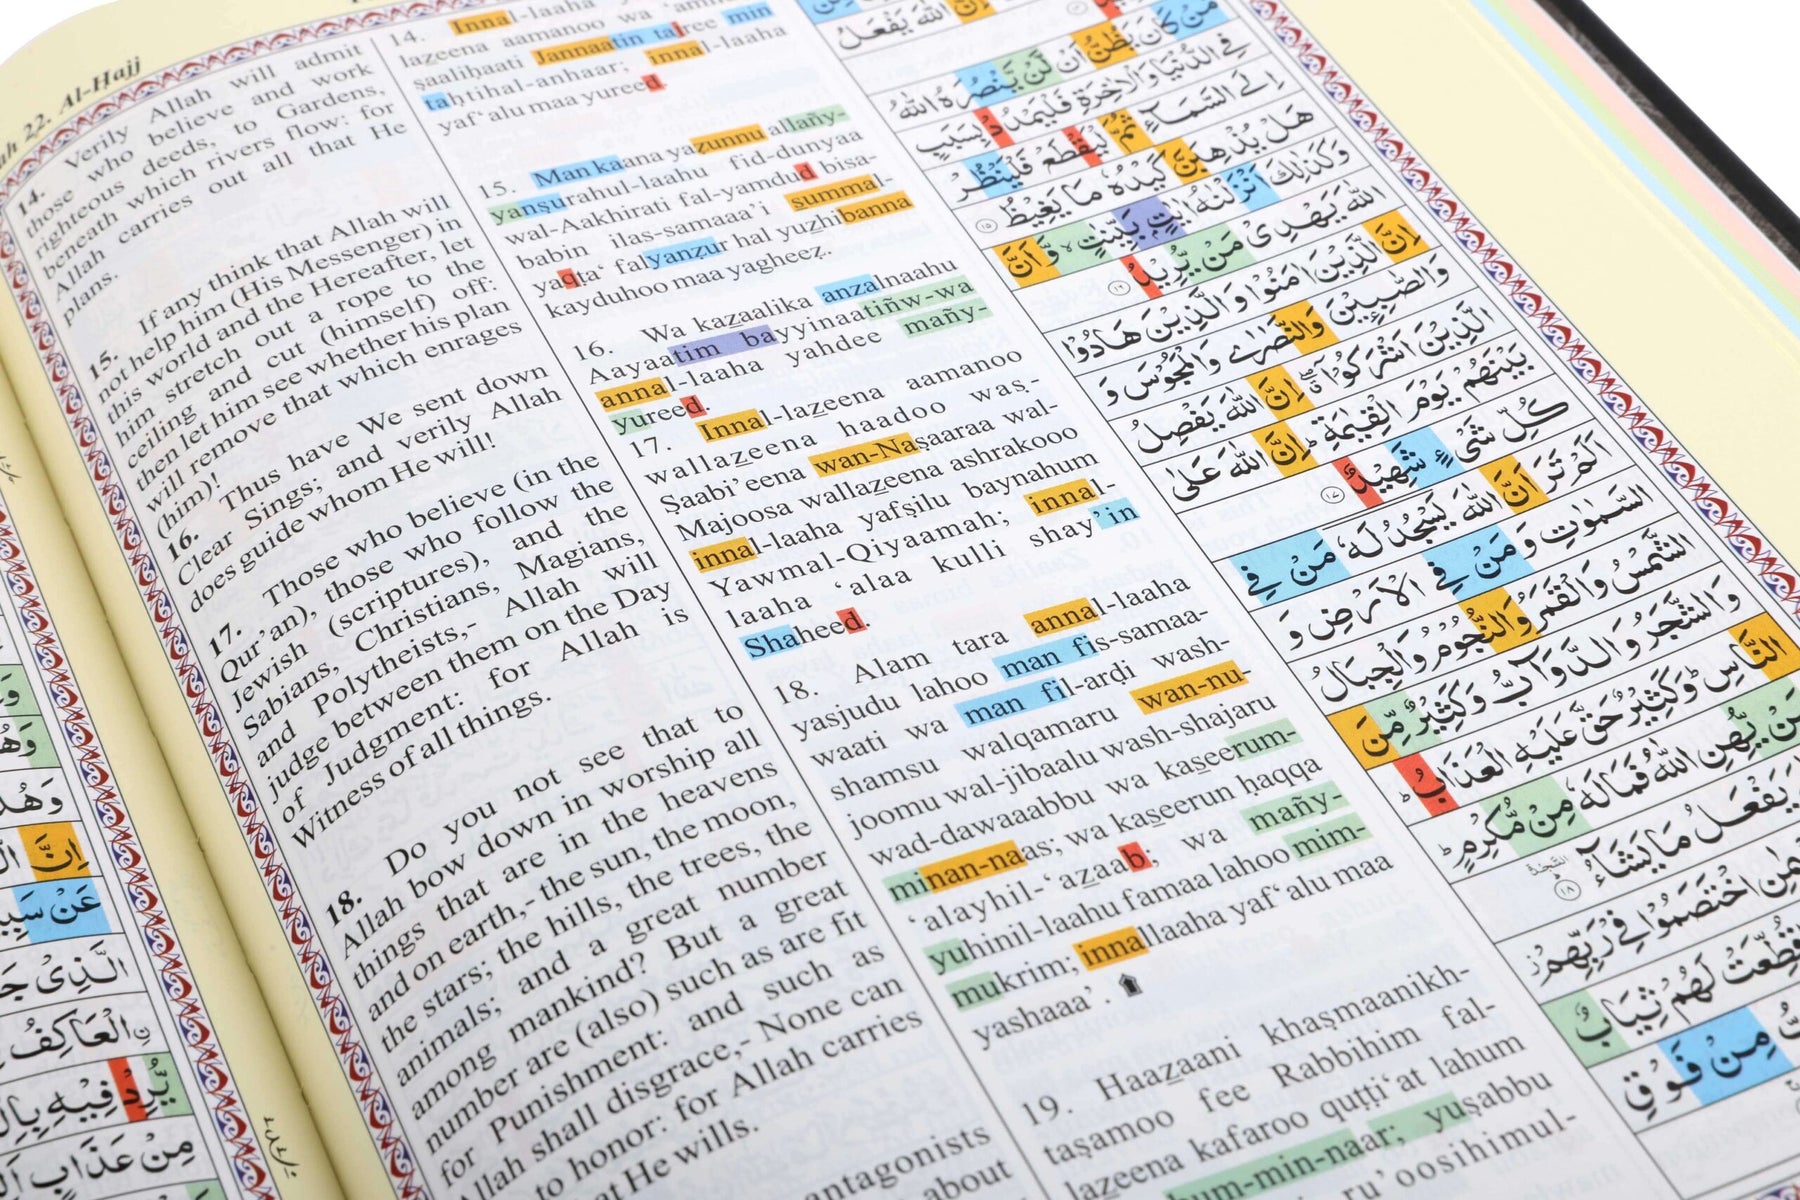 22. Al-Ḥajj
14. Verily Allah will admit
those who believe and work
righteous deeds, to Gardens,
beneath which rivers flow: for
Allah carries out all that He
plans.
15. If any think that Allah will
not help him (His Messenger) in
this world and the Hereafter, let
him stretch out a rope to the
ceiling and cut (himself) off:
then let him see whether his plan
will remove that which enrages
(him)!
16. Thus have We sent down
Clear Sings; and verily Allah
does guide whom He will!
17. Those who believe (in the
Qur’an), those who follow the
Jewish (scriptures), and the
Sabians, Christians, Magians,
and Polytheists,- Allah will
judge between them on the Day
of Judgment: for Allah is
Witness of all things.
18. Do you not see that to
Allah bow down in worship all
things that are in the heavens
and on earth,- the sun, the moon,
the stars; the hills, the trees, the
animals; and a great number
among mankind? But a great
number are (also) such as are fit
for Punishment: and such as
Allah shall disgrace,- None can
to honor: for Allah carries
He wills.
antagonists
about
14. Innal-laaha
lazeena aamanoo wa
ṣaaliḥaati Jannaatin tajree min
taḥtihal-anhaar; innal-laaha
yaf‘alu maa yureed.
15. Man kaana yaẓunnu allañy-
yanṣurahul-laahu fid-dunyaa
wal-Aakhirati fal-yamdud bisa-
babin ilas-samaaa’i summal-
yaqta‘ falyanẓur hal yuzhibanna
kayduhoo maa yagheeẓ.
16. Wa kazaalika anzalnaahu
Aayaatim bayyinaatiñw-wa
annal-laaha yahdee mañy-
yureed.
17. Innal-lazeena aamanoo
wallazeena haadoo waṣ-
Ṣaabi’eena wan-Naṣaaraa wal-
Majoosa wallazeena ashrakooo
innal-laaha yafṣilu baynahum
Yawmal-Qiyaamah; innal-
laaha ‘alaa kulli shay’in
Shaheed.
18. Alam tara annal-laaha
yasjudu lahoo man fis-samaa-
waati wa man fil-arḍi wash-
shamsu walqamaru wan-nu-
joomu wal-jibaalu wash-shajaru
wad-dawaaabbu wa kaseerum-
minan-naas; wa kaseerun ḥaqqa
‘alayhil-‘azaab; wa mañy-
yuhinil-laahu famaa lahoo mim-
mukrim; innallaaha yaf‘alu maa
yashaaa’.
19. Haazaani khaṣmaanikh-
taṣamoo fee Rabbihim fal-
lazeena kafaroo quṭṭi‘at lahum
min-naar; yuṣabbu
ru’oosihimul-
إِنَّ اللّٰهَ يَفْعَلُ
مَنْ كَانَ يَظُنُّ أَنْ لَّنْ يَّنْصُرَهُ اللّٰهُ
فِي الدُّنْيَا وَالْاٰخِرَةِ فَلْيَمْدُدْ بِسَبَبٍ
اِلَى السَّمَآءِ ثُمَّ لْيَقْطَعْ فَلْيَنْظُرْ
هَلْ يُذْهِبَنَّ كَيْدُهٗ مَا يَغِيْظُ ١٥
وَكَذٰلِكَ اَنْزَلْنٰهُ اٰيٰتٍۢ بَيِّنٰتٍ ۙ وَّاَنَّ
اللّٰهَ يَهْدِيْ مَنْ يُّرِيْدُ ١٦
اِنَّ الَّذِيْنَ اٰمَنُوْا وَالَّذِيْنَ هَادُوْا
وَالصّٰبِـِٕيْنَ وَالنَّصٰرٰى وَالْمَجُوْسَ وَ
الَّذِيْنَ اَشْرَكُوْا ۖ اِنَّ اللّٰهَ يَفْصِلُ
بَيْنَهُمْ يَوْمَ الْقِيٰمَةِ ؕ اِنَّ اللّٰهَ عَلٰى
كُلِّ شَيْءٍ شَهِيْدٌ ١٧
اَلَمْ تَرَ اَنَّ اللّٰهَ يَسْجُدُ لَهٗ مَنْ فِي
السَّمٰوٰتِ وَمَنْ فِي الْاَرْضِ وَ
الشَّمْسُ وَالْقَمَرُ وَالنُّجُوْمُ وَالْجِبَالُ
وَالشَّجَرُ وَالدَّوَآبُّ وَكَثِيْرٌ مِّنَ
النَّاسِ ؕ وَكَثِيْرٌ حَقَّ عَلَيْهِ الْعَذَابُ ؕ
يُّهِنِ اللّٰهُ فَمَا لَهٗ مِنْ مُّكْرِمٍ ؕ
يَفْعَلُ مَا يَشَآءُ ١٨
اخْتَصَمُوْا فِيْ رَبِّهِمْ
قُطِّعَتْ لَهُمْ ثِيَابٌ
مِنْ فَوْقِ